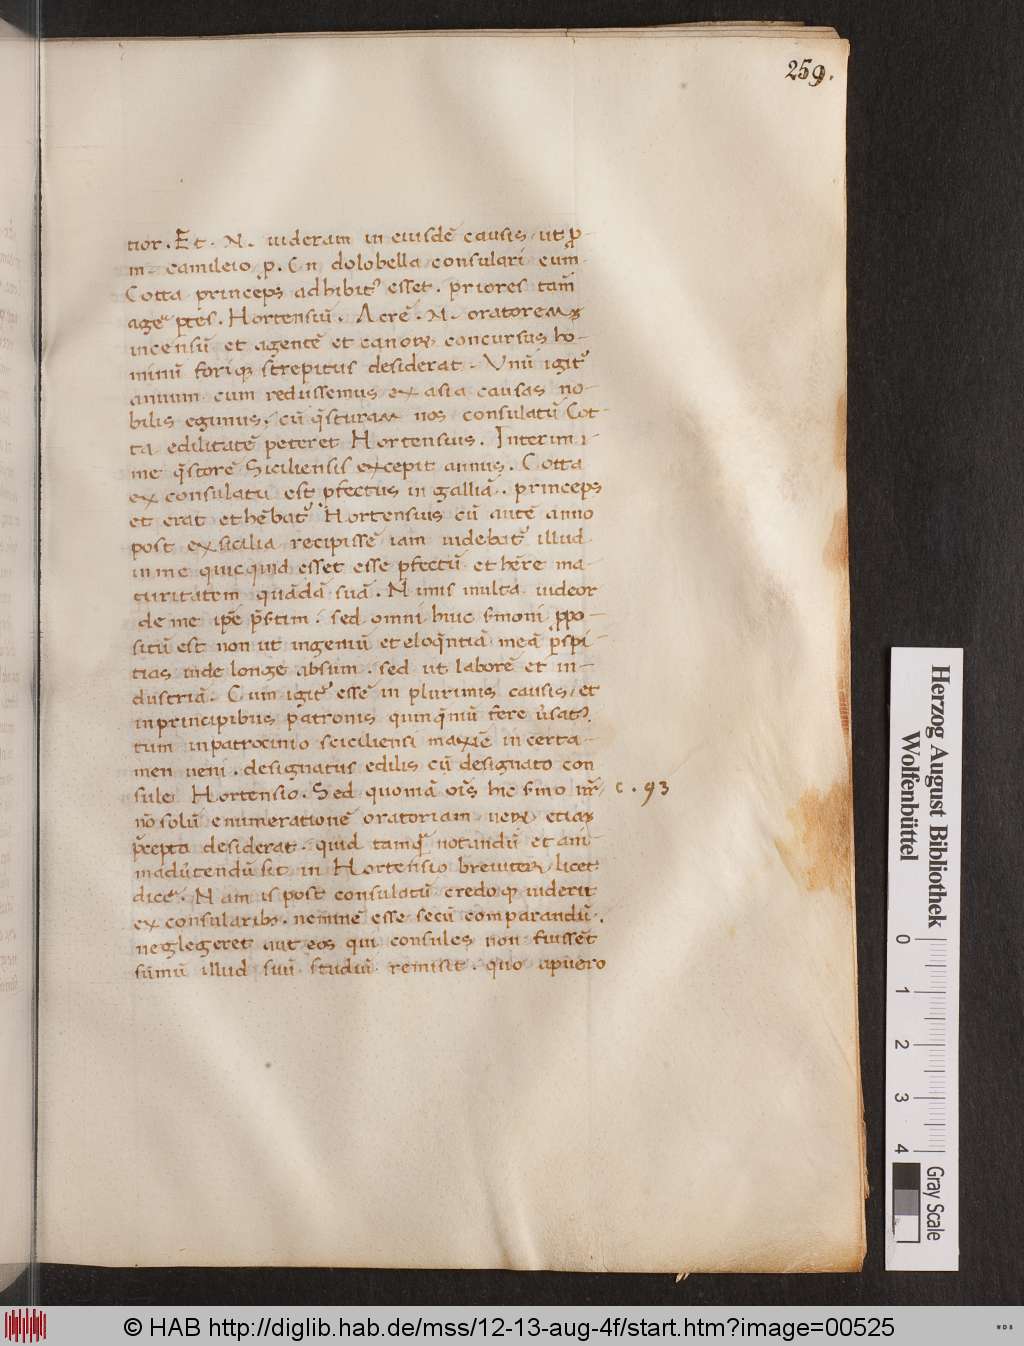 259.
tior. Et. N. uideram in eiusdē causis ut p̄-
m. camileio p. Cn dolobella consulari eum
Cotta princeps adhibit᷒ esset. priores tam̄
agē ptes. Hortensiū. Acrē. N. oratorem
incensū et agentē et canorū concursus ho-
minū foriq; strepitus desiderat. Vnū igit᷒
annum cum redissemus ex asia causas no-
bilis egimus. cū q̄sturam nos consulatū Cot-
ta edilitatē peteret Hortensius. Interim i-
me q̄storē Siciliensis excepit annus. Cotta
ex consulatu est pfectus in galliā. princeps
et erat et hēbat᷒ Hortensius cū autē anno
post ex sicilia recipissē iam uidebat᷒ illud
in me quicquid esset esse pfectū et hēre ma-
turitatem quādā suā. Nimis multa uideor
de me ip̄e p̄sertim. sed omni huic sermoni ppo-
situ est non ut ingeniū et eloq̄ntiā meā p̄spi
tias unde longe absum. sed ut laborē et in-
dustriā. Cum igit᷒ essē in plurimis causis et
in principibus patronis quinq̄niū fere ūsat᷒.
tum in patrocinio sciciliensi maxiē in certa-
men ueni. designatus edilis cū designato con
sule Hortensio. Sed quoniā oīs hic sermo nr̄
c. 93
nō solū enumerationē oratoriam uerū etiam
p̄cepta desiderat. quid tamq̄ notandū et ani
maduertendū sit in Hortensio breuiter licet
dicē. Nam is post consulatū credo q; uiderit
ex consularib᷒. neminē esse secū comparandū.
neglegeret aut eos qui consules non fuissēt
sūmū illud suū studiū remisit. quo apuero
Herzog August Bibliothek
Wolfenbüttel
0 1 2 3 4
Gray Scale
© HAB http://diglib.hab.de/mss/12-13-aug-4f/start.htm?image=00525